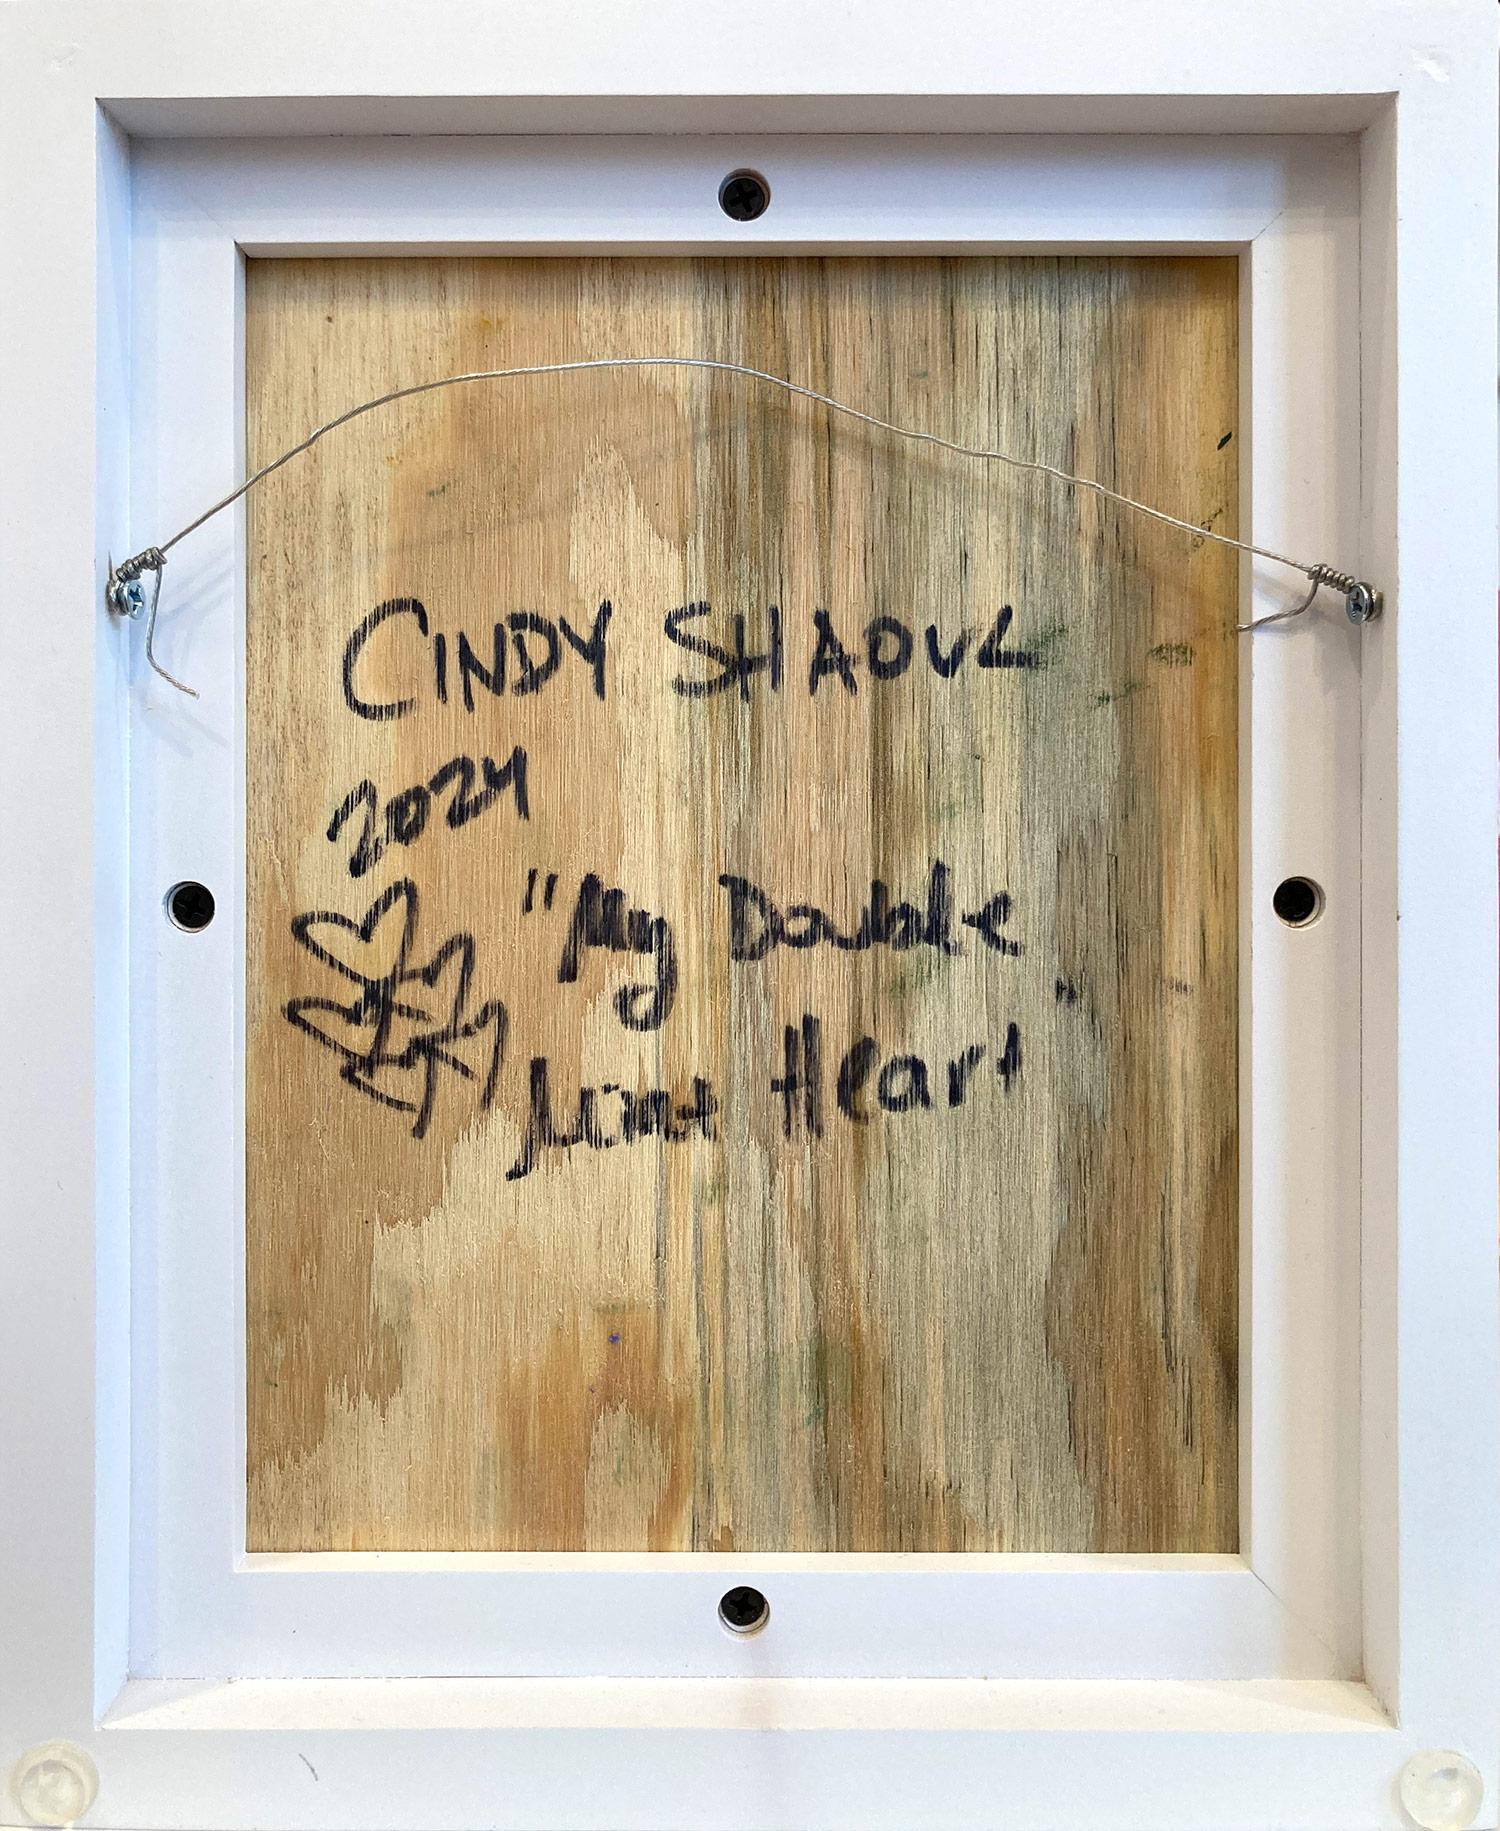 CINDY SHAOUL
2024
"My Double
Mint Heart"